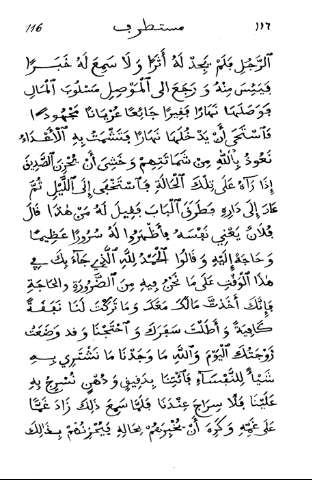 ١١٦ مستطرف 116
الرَّجُلِ فَلَمْ يَجِدْ لَهُ أَثَرًا وَلَا سَمِعَ لَهُ خَبَرًا
فَيَئِسَ مِنْهُ وَرَجَعَ الى الْمَوْصِلِ مَسْلُوبَ الْمَالِ
فَوَصَلَهَا نَهَارًا فَقِيرًا جَائِعًا عُرْيَانًا مَجْهُودًا
فَاسْتَحَى أَنْ يَدْخُلَهَا نَهَارًا فَتَشْمَتَ بِهِ الْأَعْدَاءُ
نَعُوذُ بِاللهِ مِنْ شَمَاتَتِهِمْ وَخَشِىَ أَنْ يَحْزَنَ الصَّدِيقُ
إِذَا رَآهُ عَلَى تِلْكَ الْحَالَةِ فَاسْتَخْفَى إِلَى اللَّيْلِ ثُمَّ
عَادَ إِلَى دَارِهِ فَطَرَقَ الْبَابَ فَقِيلَ لَهُ مَنْ هٰذَا قَالَ
فُلَانٌ يَعْنِي نَفْسَهُ فَأَظْهَرُوا لَهُ سُرُورًا عَظِيمًا
وَحَاجَةً إِلَيْهِ وَقَالُوا الْحَمْدُ لِلّٰهِ الَّذِي جَاءَ بِكَ فِي
هٰذَا الْوَقْتِ عَلَى مَا نَحْنُ فِيهِ مِنَ الضَّرُورَةِ وَالْحَاجَةِ
فَإِنَّكَ أَخَذْتَ مَالَكَ مَعَكَ وَمَا تَرَكْتَ لَنَا نَفَقَةً
كَافِيَةً وَأَطَلْتَ سَفَرَكَ وَاحْتَجْنَا وَقد وَضَعَتْ
زَوْجَتُكَ الْيَوْمَ وَاللّٰهِ مَا وَجَدْنَا مَا نَشْتَرِي بِهِ
شَيْأً لِلنُّفَسَاءِ فَائْتِنَا بِدَقِيقٍ وَدُهْنٍ نُسْرِجُ بِهِ
عَلَيْنَا فَلَا سِرَاجَ عِنْدَنَا فَلَمَّا سَمِعَ ذٰلِكَ زَادَ غَمًّا
عَلَى غَمِّهِ وَكَرِهَ أَنْ يُخْبِرَهُمْ بِحَالِهِ فَيُحْزِنَهُمْ بِذٰلِكَ